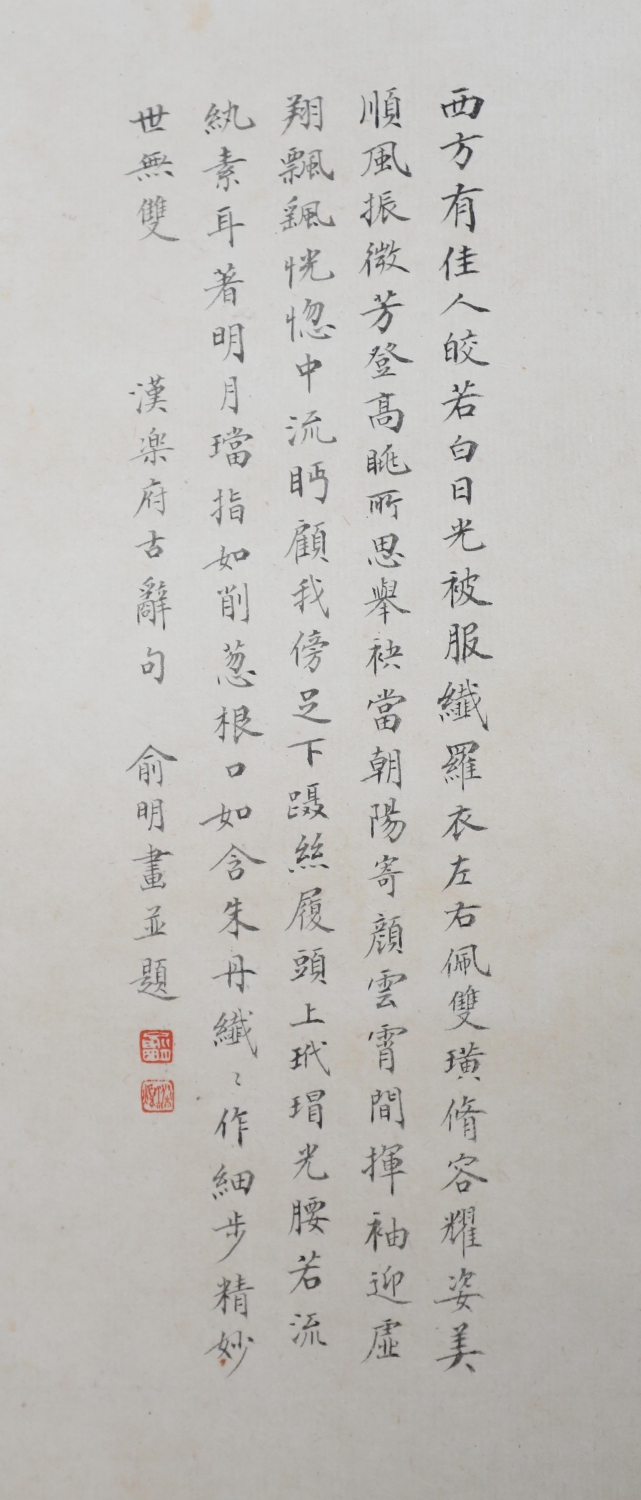 西方有佳人皎若白日光被服纖羅衣左右佩雙璜脩容耀姿美
順風振微芳登高眺所思舉袂當朝陽寄顔雲霄間揮袖迎虛
翔飄飄恍惚中流眄顧我傍足下躡絲履頭上玳瑁光腰若流
紈素耳著明月璫指如削葱根口如含朱丹纖〻作細步精妙
世無雙　漢楽府古辭句　俞明畫並題